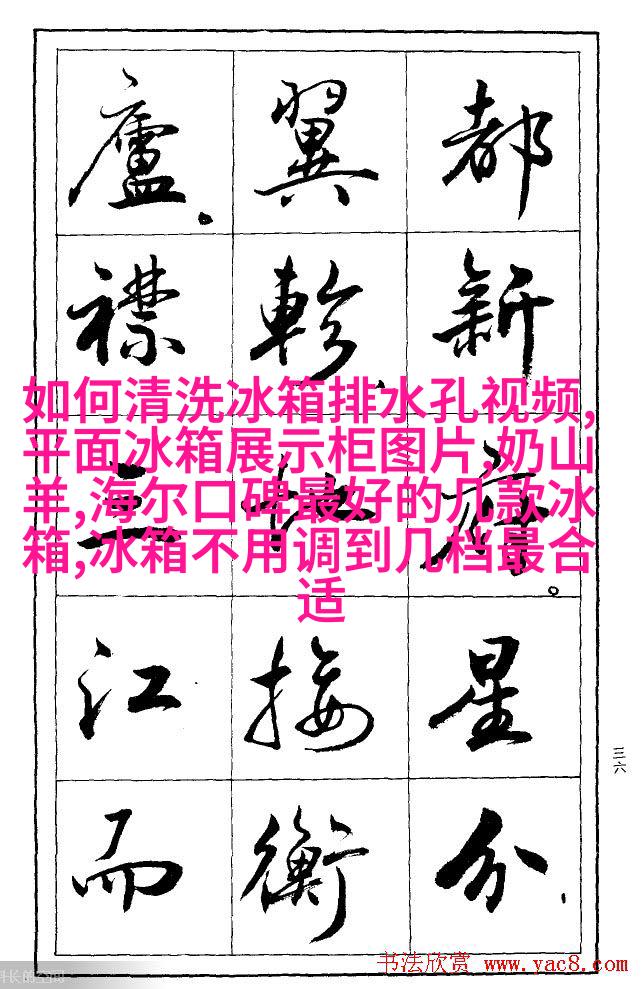 都新府。星分、
翼軫、地接衡
廬。襟三江而
如何清洗冰箱排水孔视频,
平面冰箱展示柜图片,奶山
羊,海尔口碑最好的几款冰
箱,冰箱不用调到几档最合
适
三六
书法欣赏 www.yac8.com
长的空间